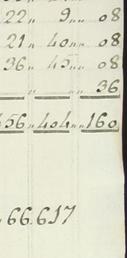 22 „ 9 „ 08
21 „ 40 „ 08
36 „ 45 „ 08
„ „ 36
456 „ 404 „ 160
„ 66.617